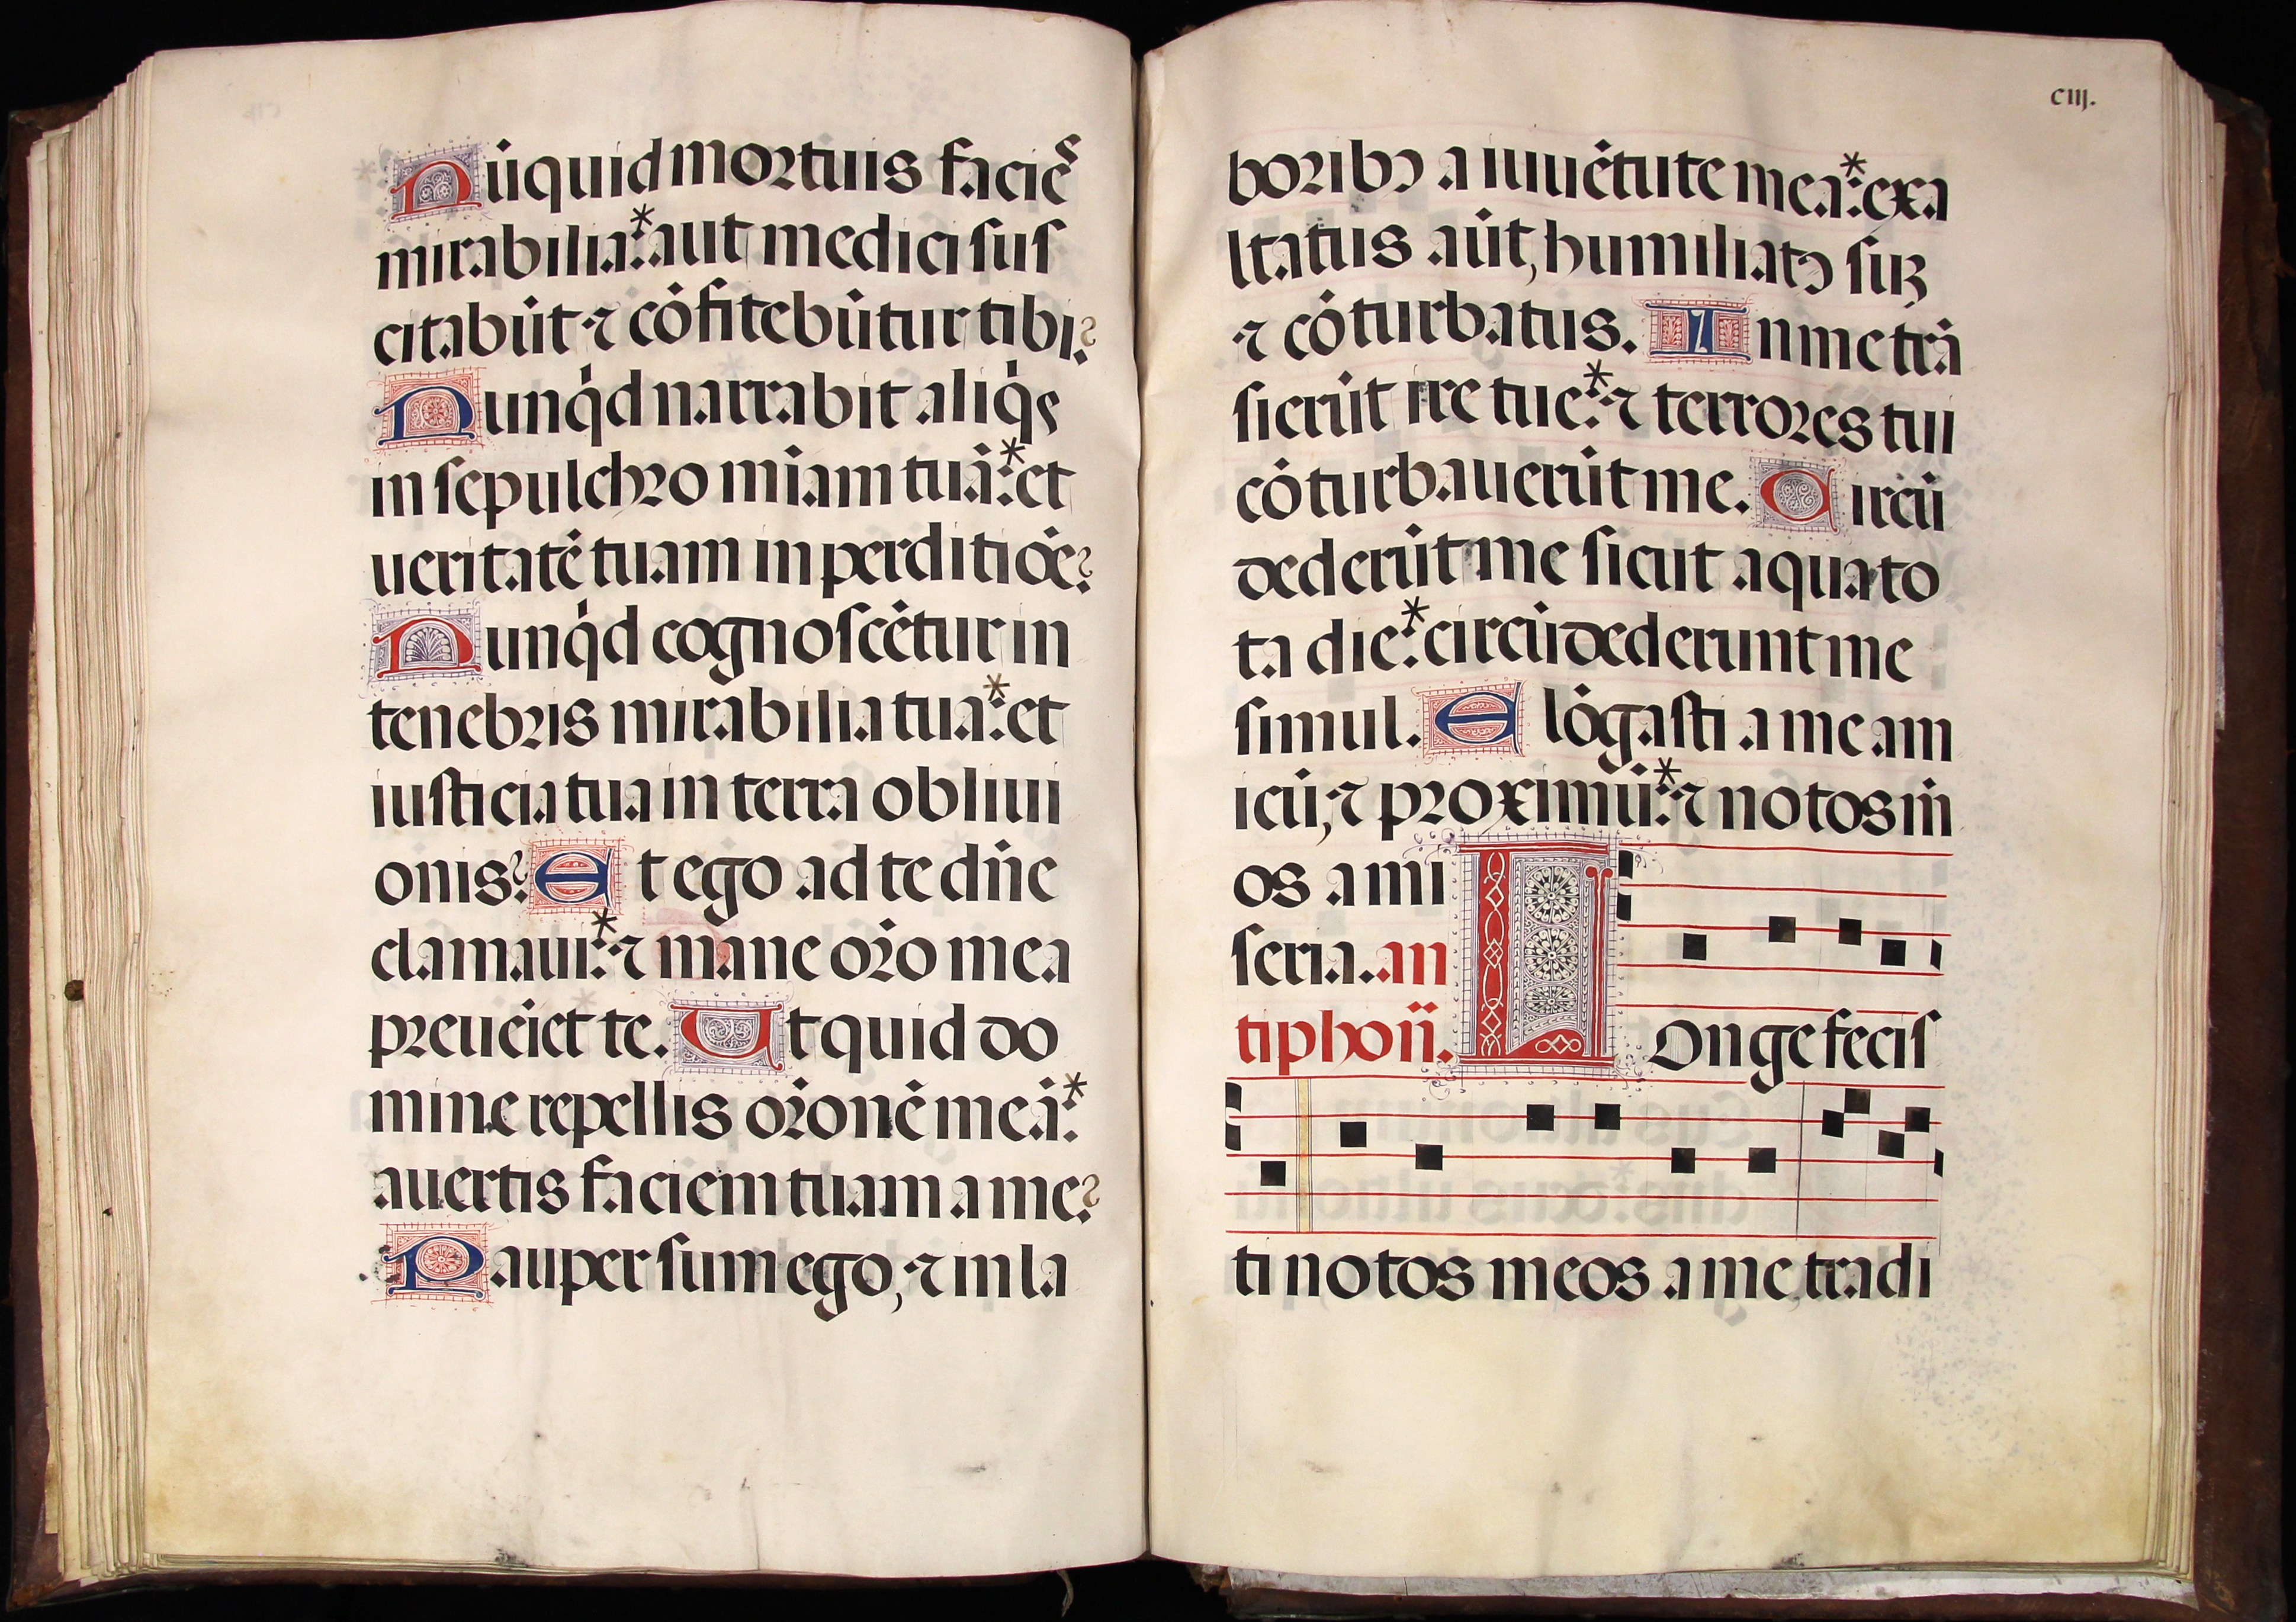 Nūquid mortuis facieˢ
mirabilia:* aut medici suſ
citabūt ⁊ cōfitebūtur tibi?
Nunqͥd narrabit aliqͥs
in ſepulchro miam tuā:* et
ueritatē tuam in perditiōe?
Nunqͥd cognoſcētur in
tenebris mirabilia tua:* et
iuſticia tua in terra obliui
onis? Et ego ad te dn̄e
clamaui:* ⁊ mane oр̄o mea
preueīet te. Ut quid do
mine repellis or̄onē meā:*
auertis faciem tuam a me?
Pauper ſum ego, ⁊ in la
ciij.
boribꝰ a iuuētute mea:* exa
ltatus aūt, humiliatꝰ ſuꝫ
⁊ cōturbatus. In me trā
ſierūt ire tue:* ⁊ terrores tui
cōturbauerūt me. Circū
dederūt me ſicut aqua to
ta die:* circūdederunt me
ſimul. Elōgaſti a me am
icū, ⁊ proximū:* ⁊ notos m̄
os a mi
ſeria. an
tiphon̄. Longe feciſ
ti notos meos a me, tradi